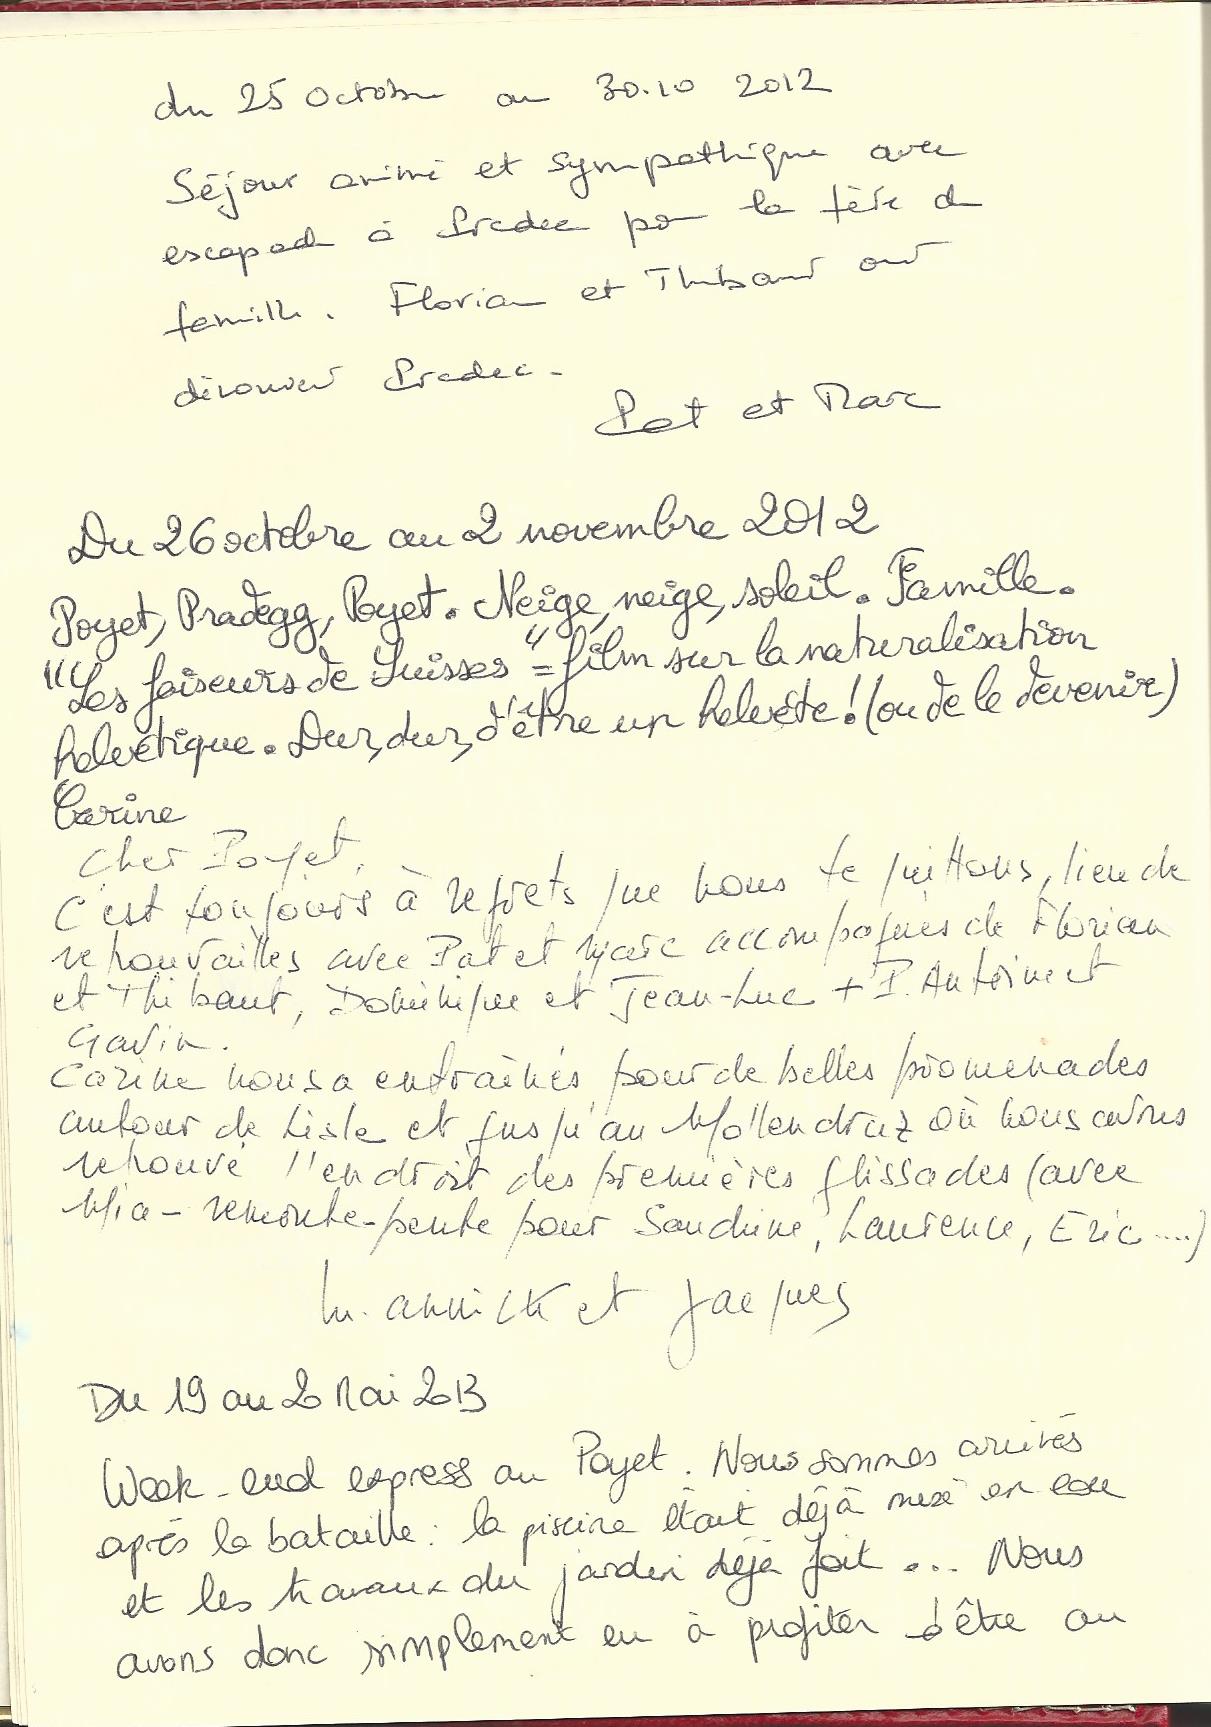 du 25 Octobre au 30.10 2012
Séjour animé et sympathique avec
escapade à Pradec pour la fête de
famille. Florian et Thibaut ont
découvert Pradec.
Pat et Marc
Du 26 octobre au 2 novembre 2012
Poyet, Pradegg, Poyet. Neige, neige, soleil. Famille.
"Les faiseurs de Suisses" = film sur la naturalisation
helvétique. Dur, dur, d'être un helvète! (ou de le devenir)
Carine
Cher Poyet,
C'est toujours à regrets que nous te quittons, lieu de
retrouvailles avec Pat et Marc accompagnés de Florian
et Thibaut, Dominique et Jean-Luc + P. Antoine et
Gavin.
Carine nous a entraînés pour de belles promenades
autour de Lisle et jusqu'au Mollendruz où nous avons
retrouvé l'endroit des premières glissades (avec
Mia - remonte-pente pour Sandrine, Laurence, Eric....)
M. annick et Jacques
Du 19 au 20 Mai 2013
Week-end express au Poyet. Nous sommes arrivés
après la bataille: la piscine était déjà mise en eau
et les travaux du jardin déjà fait... Nous
avons donc simplement eu à profiter d'être au